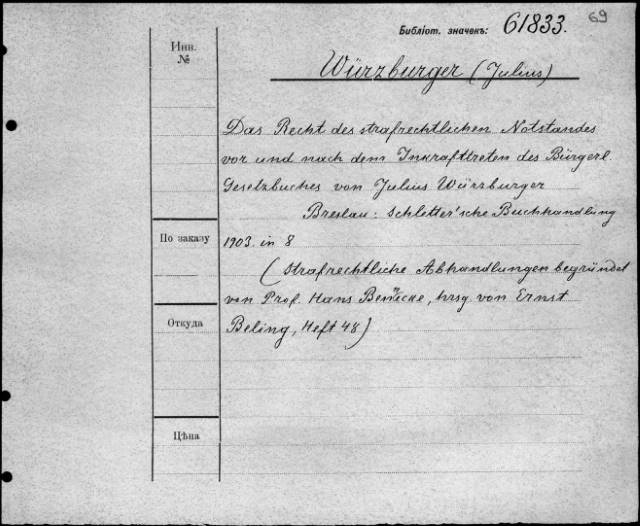 Библіот. значекъ: 61833. 69
Инв.
№
Würzburger (Julius)
Das Recht des strafrechtlichen Notstandes
vor und nach dem Inkrafttreten des Bürgerl.
Gesetzbuches von Julius Würzburger
Breslau: Schletter'sche Buchhandlung
По заказу
1903. in 8
(Strafrechtliche Abhandlungen begründet
von Prof. Hans Bennecke, hrsg. von Ernst
Откуда
Beling, Heft 48)
Цѣна